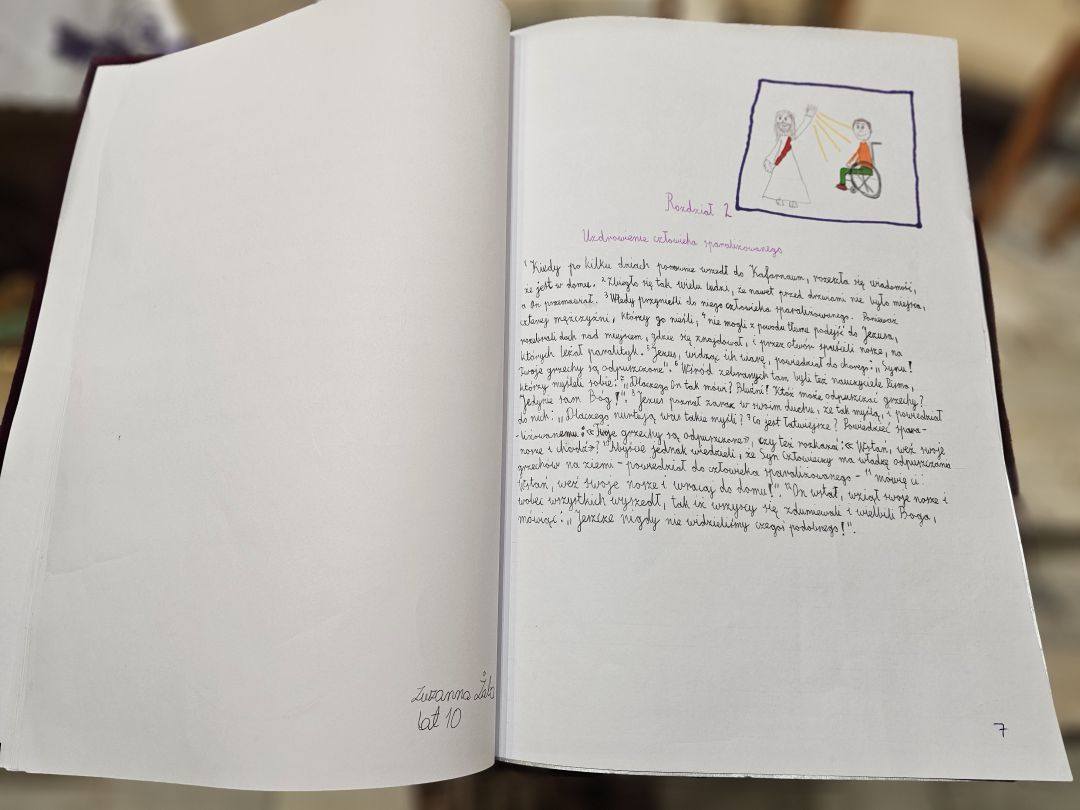 Zuzanna
lat 10
Rozdział 2
Uzdrowienie człowieka sparaliżowanego
1 Kiedy po kilku dniach ponownie wszedł do Kafarnaum, rozeszła się wiadomość,
że jest w domu. 2 Zbiegło się tak wielu ludzi, że nawet przed drzwiami nie było miejsca,
a On przemawiał. 3 Wtedy przynieśli do niego człowieka sparaliżowanego. Ponieważ
czterej mężczyźni, którzy go nieśli, 4 nie mogli z powodu tłumu podejść do Jezusa,
rozebrali dach nad miejscem, gdzie się znajdował, i przez otwór spuścili nosze, na
których leżał paralityk. 5 Jezus, widząc ich wiarę, powiedział do chorego: „Synu!
Twoje grzechy są odpuszczone". 6 Wśród zebranych tam byli też nauczyciele Pisma,
którzy myśleli sobie: 7 „Dlaczego On tak mówi? Bluźni! Któż może odpuszczać grzechy?
Jedynie sam Bóg!". 8 Jezus poznał zaraz w swoim duchu, że tak myślą, i powiedział
do nich: „Dlaczego nurtują was takie myśli? 9 Co jest łatwiejsze? Powiedzieć spara-
-liżowanemu: «Twoje grzechy są odpuszczone», czy też rozkazać: «Wstań, weź swoje
nosze i chodź»? 10 Abyście jednak wiedzieli, że Syn Człowieczy ma władzę odpuszczania
grzechów na ziemi - powiedział do człowieka sparaliżowanego - 11 mówię ci:
Wstań, weź swoje nosze i wracaj do domu!". 12 On wstał, wziął swoje nosze i
wobec wszystkich wyszedł, tak iż wszyscy się zdumiewali i wielbili Boga,
mówiąc: „Jeszcze nigdy nie widzieliśmy czegoś podobnego!".
7